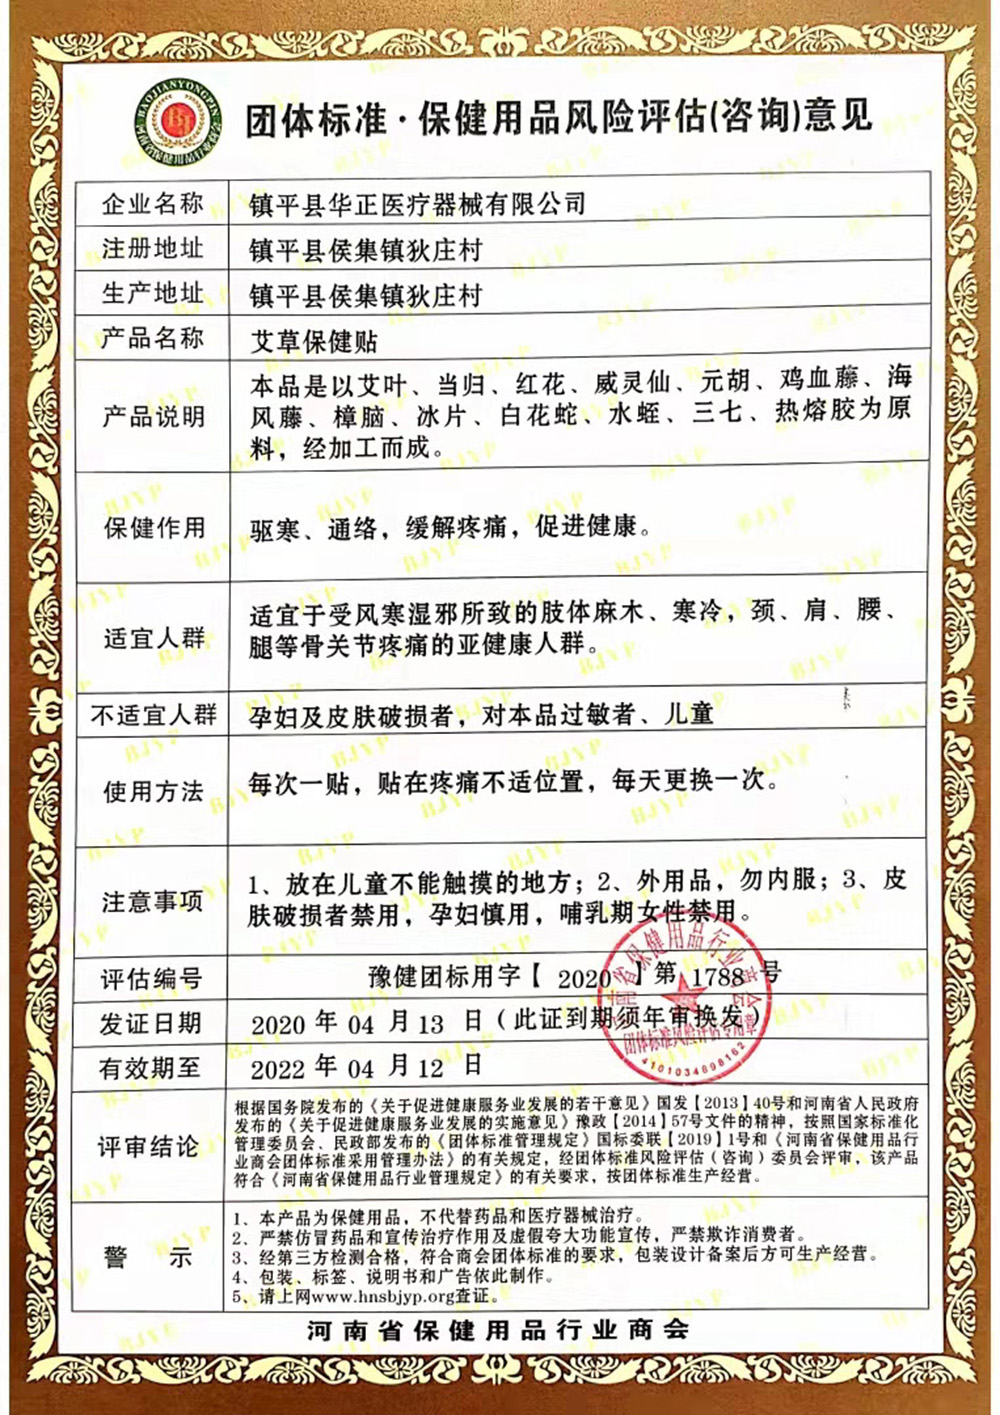 BAOJIANYONGPIN
BJ
河南省保健用品行业商会
团体标准·保健用品风险评估(咨询)意见
企业名称 镇平县华正医疗器械有限公司
注册地址 镇平县侯集镇狄庄村
生产地址 镇平县侯集镇狄庄村
产品名称 艾草保健贴
产品说明 本品是以艾叶、当归、红花、威灵仙、元胡、鸡血藤、海
风藤、樟脑、冰片、白花蛇、水蛭、三七、热熔胶为原
料，经加工而成。
保健作用 驱寒、通络，缓解疼痛，促进健康。
适宜人群 适宜于受风寒湿邪所致的肢体麻木、寒冷，颈、肩、腰、
腿等骨关节疼痛的亚健康人群。
不适宜人群 孕妇及皮肤破损者，对本品过敏者、儿童
使用方法 每次一贴，贴在疼痛不适位置，每天更换一次。
注意事项 1、放在儿童不能触摸的地方；2、外用品，勿内服；3、皮
肤破损者禁用，孕妇慎用，哺乳期女性禁用。
评估编号 豫健团标用字【 2020 】第 1788 号
发证日期 2020 年 04 月 13 日（此证到期须年审换发
有效期至 2022 年 04 月 12 日
河南省保健用品行业商会
团体标准风险评估专用章
4101034698162
评审结论 根据国务院发布的《关于促进健康服务业发展的若干意见》国发【2013】40号和河南省人民政府
发布的《关于促进健康服务业发展的实施意见》豫政【2014】57号文件的精神，按照国家标准化
管理委员会、民政部发布的《团体标准管理规定》国标委联【2019】1号和《河南省保健用品行
业商会团体标准采用管理办法》的有关规定，经团体标准风险评估（咨询）委员会评审，该产品
符合《河南省保健用品行业管理规定》的有关要求，按团体标准生产经营。
警 示 1、本产品为保健用品，不代替药品和医疗器械治疗。
2、严禁仿冒药品和宣传治疗作用及虚假夸大功能宣传，严禁欺诈消费者。
3、经第三方检测合格，符合商会团体标准的要求，包装设计备案后方可生产经营。
4、包装、标签、说明书和广告依此制作。
5、请上网www.hnsbjyp.org查证。
河南省保健用品行业商会